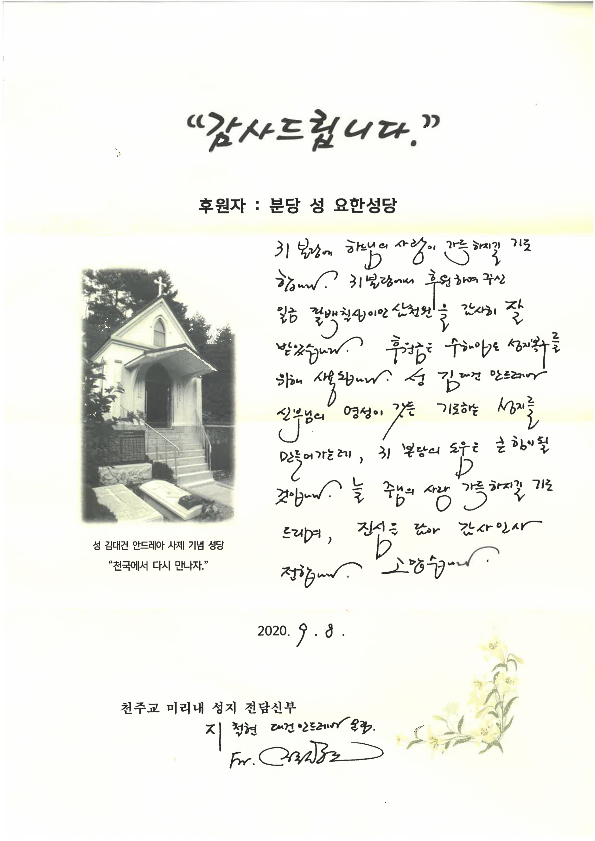 “감사드립니다.”
후원자 : 분당 성 요한성당
귀 본당에 하느님의 사랑이 가득하시길 기도
합니다. 귀 본당에서 후원하여 주신
일금 팔백칠십이만 삼천원을 감사히 잘
받았습니다. 후원금은 수해입은 성지복구를
위해 사용됩니다. 성 김대건 안드레아
신부님의 영성이 깃든 기도하는 성지를
만들어가는데, 귀 본당의 도움은 큰 힘이 될
것입니다. 늘 주님의 사랑 가득하시길 기도
드리며, 진심을 담아 감사인사
전합니다. 고맙습니다.
성 김대건 안드레아 사제 기념 성당
“천국에서 다시 만나자.”
2020. 9. 8.
천주교 미리내 성지 전담신부
지철현 대건안드레아 올림.
Fr.